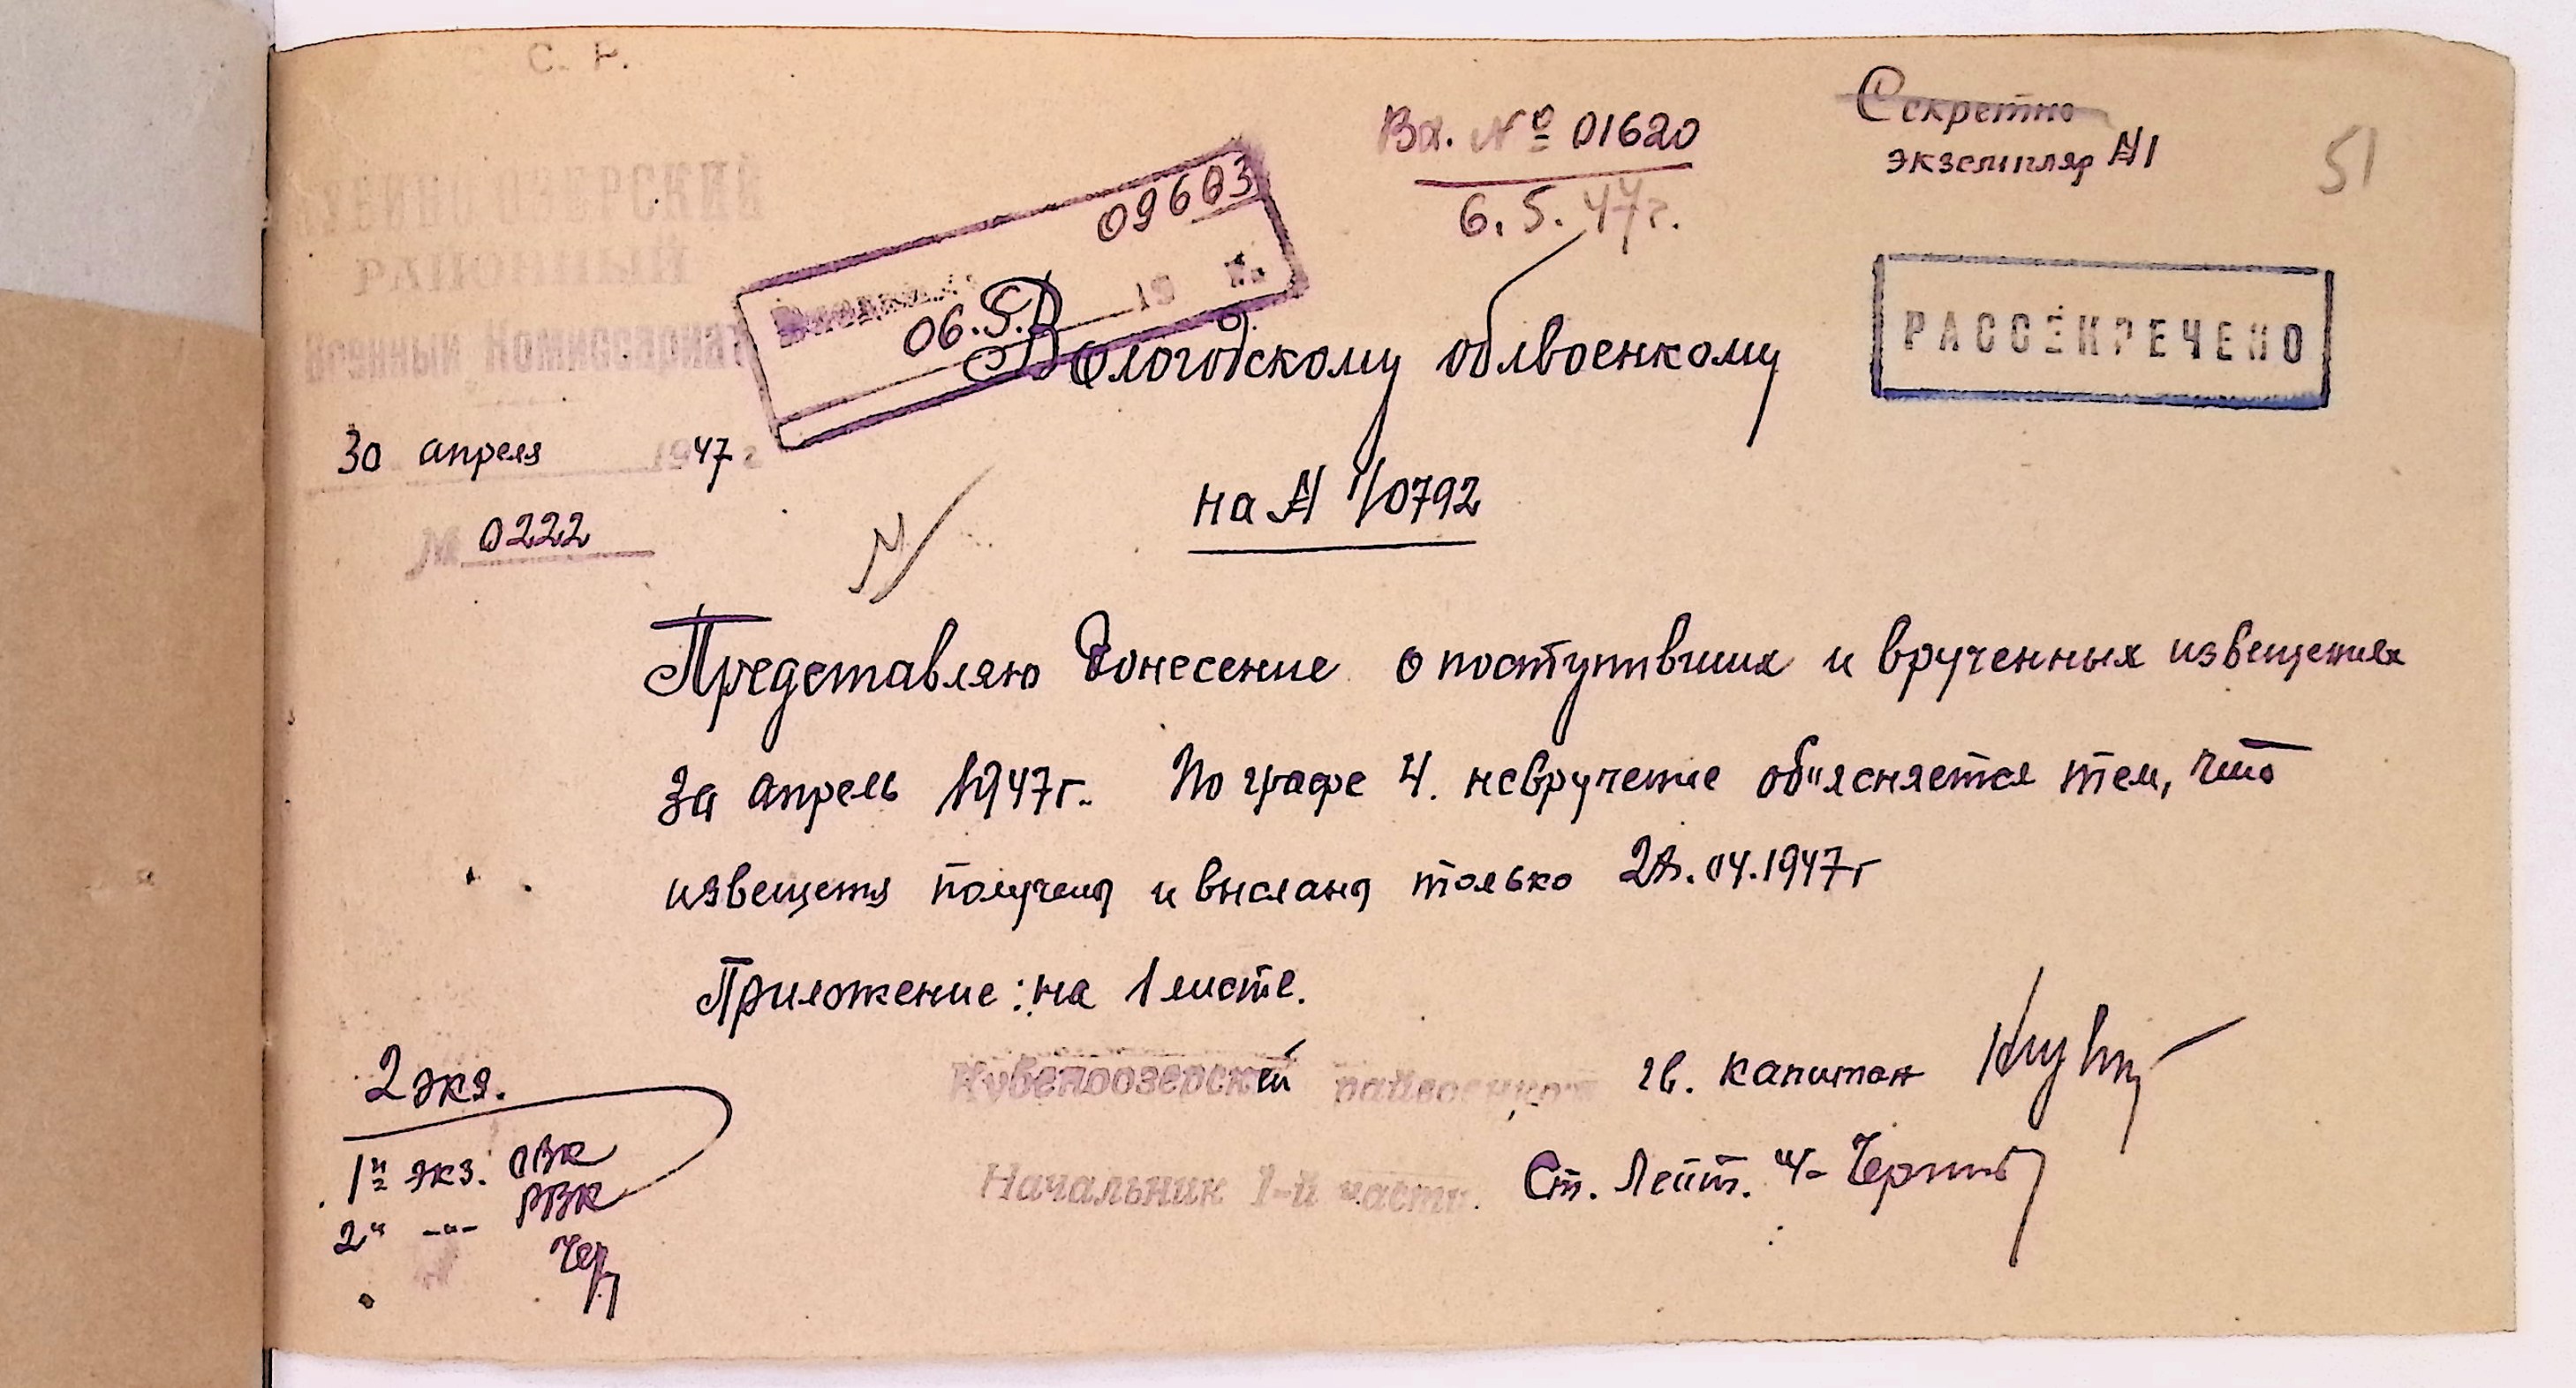 С. Р.
Вх. № 01620
6.5.47г.
Секретно
экземпляр №1
51
РАЙОННЫЙ
Военный Комиссариат
09603
06.5. 19 г.
РАССЕКРЕЧЕНО
Вологодскому облвоенкому
30 апреля 1947 г
на № 1/0792
№ 0222
Представляю донесение о поступивших и врученных извещениях
за апрель 1947г. По графе 4. невручение об"ясняется тем, что
извещения получены и высланы только 28.04.1947г
Приложение: на 1 листе.
2 экз.
Кубеноозерский райвоенком гв. капитан
1й экз. ОВК
2й -"- РВК
Начальник 1-й части. Ст. Лейт.